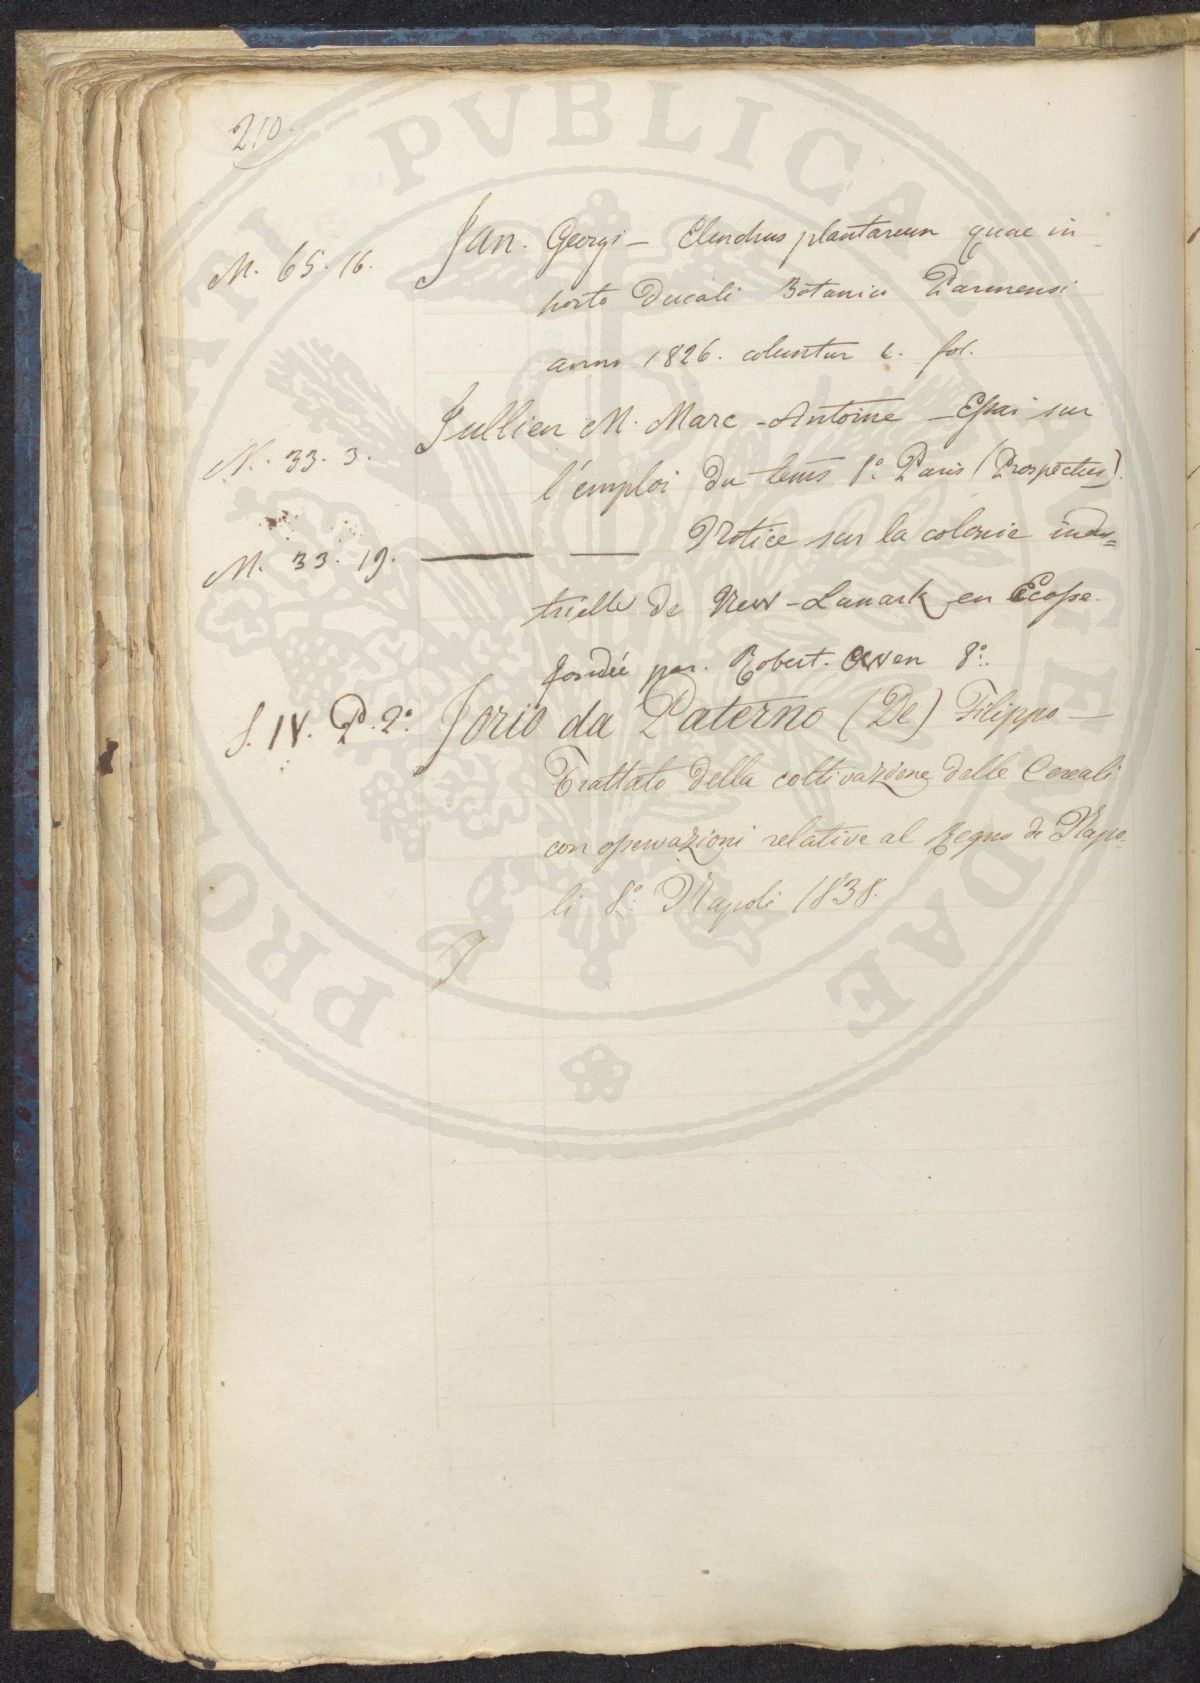 210.
M. 65. 16. Jan. Georgi – Elenchus plantarum quae in
horto Ducali Botanico Parmensi
anno 1826. coluntur c. fol.
M. 33. 3. Jullien M. Marc-Antoine – Essai sur
l'emploi du tems 8.º Paris (Prospectus).
M. 33. 19. —— —— Notice sur la colonie indu=
trielle de New-Lanark en Ecosse.
fondée par. Robert. Owen 8.º
S. IV. P. 2.º Jorio da Paterno (De) Filippo –
Trattato della coltivazione delle Cereali
con osservazioni relative al Regno di Napo-
li 8.º Napoli 1838.
J
PROBITATI PVBLICAE